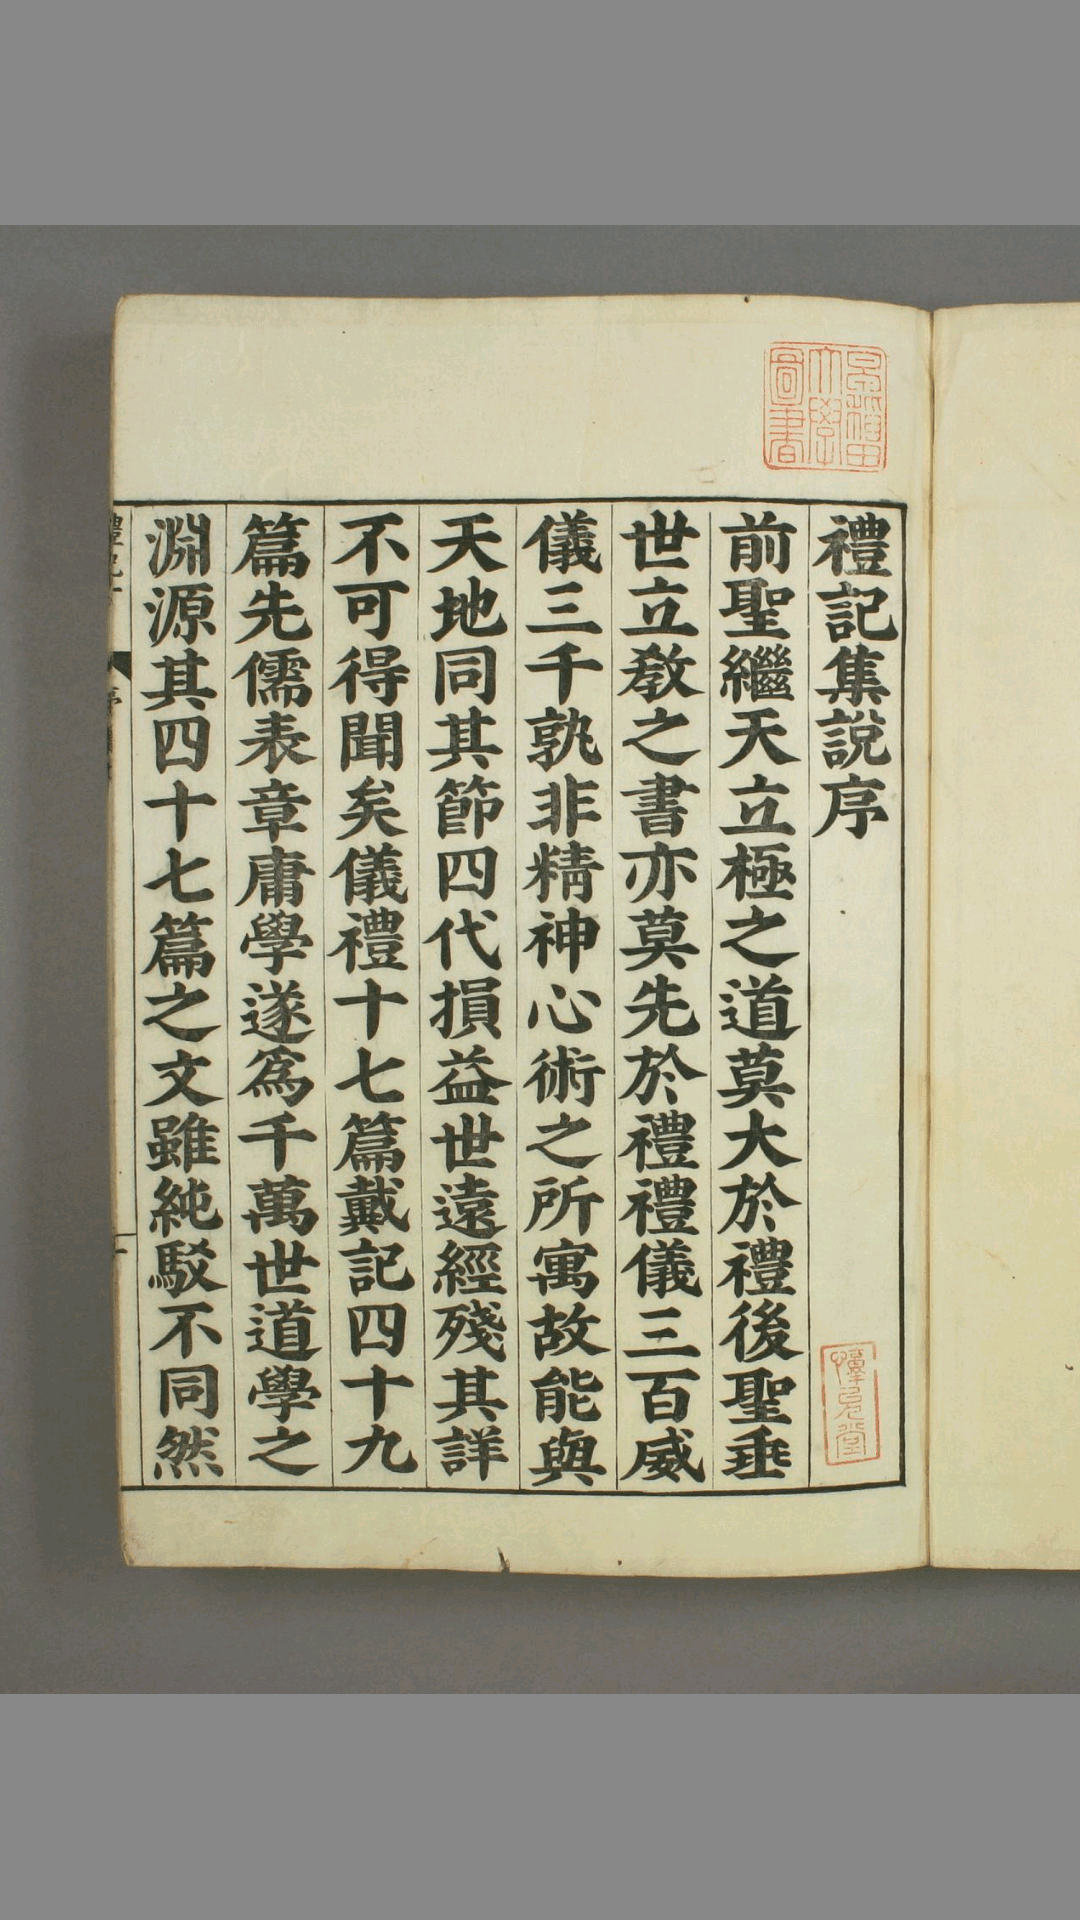 禮記集說序
前聖繼天立極之道莫大於禮後聖垂
世立教之書亦莫先於禮禮儀三百威
儀三千孰非精神心術之所寓故能與
天地同其節四代損益世遠經殘其詳
不可得聞矣儀禮十七篇戴記四十九
篇先儒表章庸學遂爲千萬世道學之
淵源其四十七篇之文雖純駁不同然
早稻田
大學
圖書